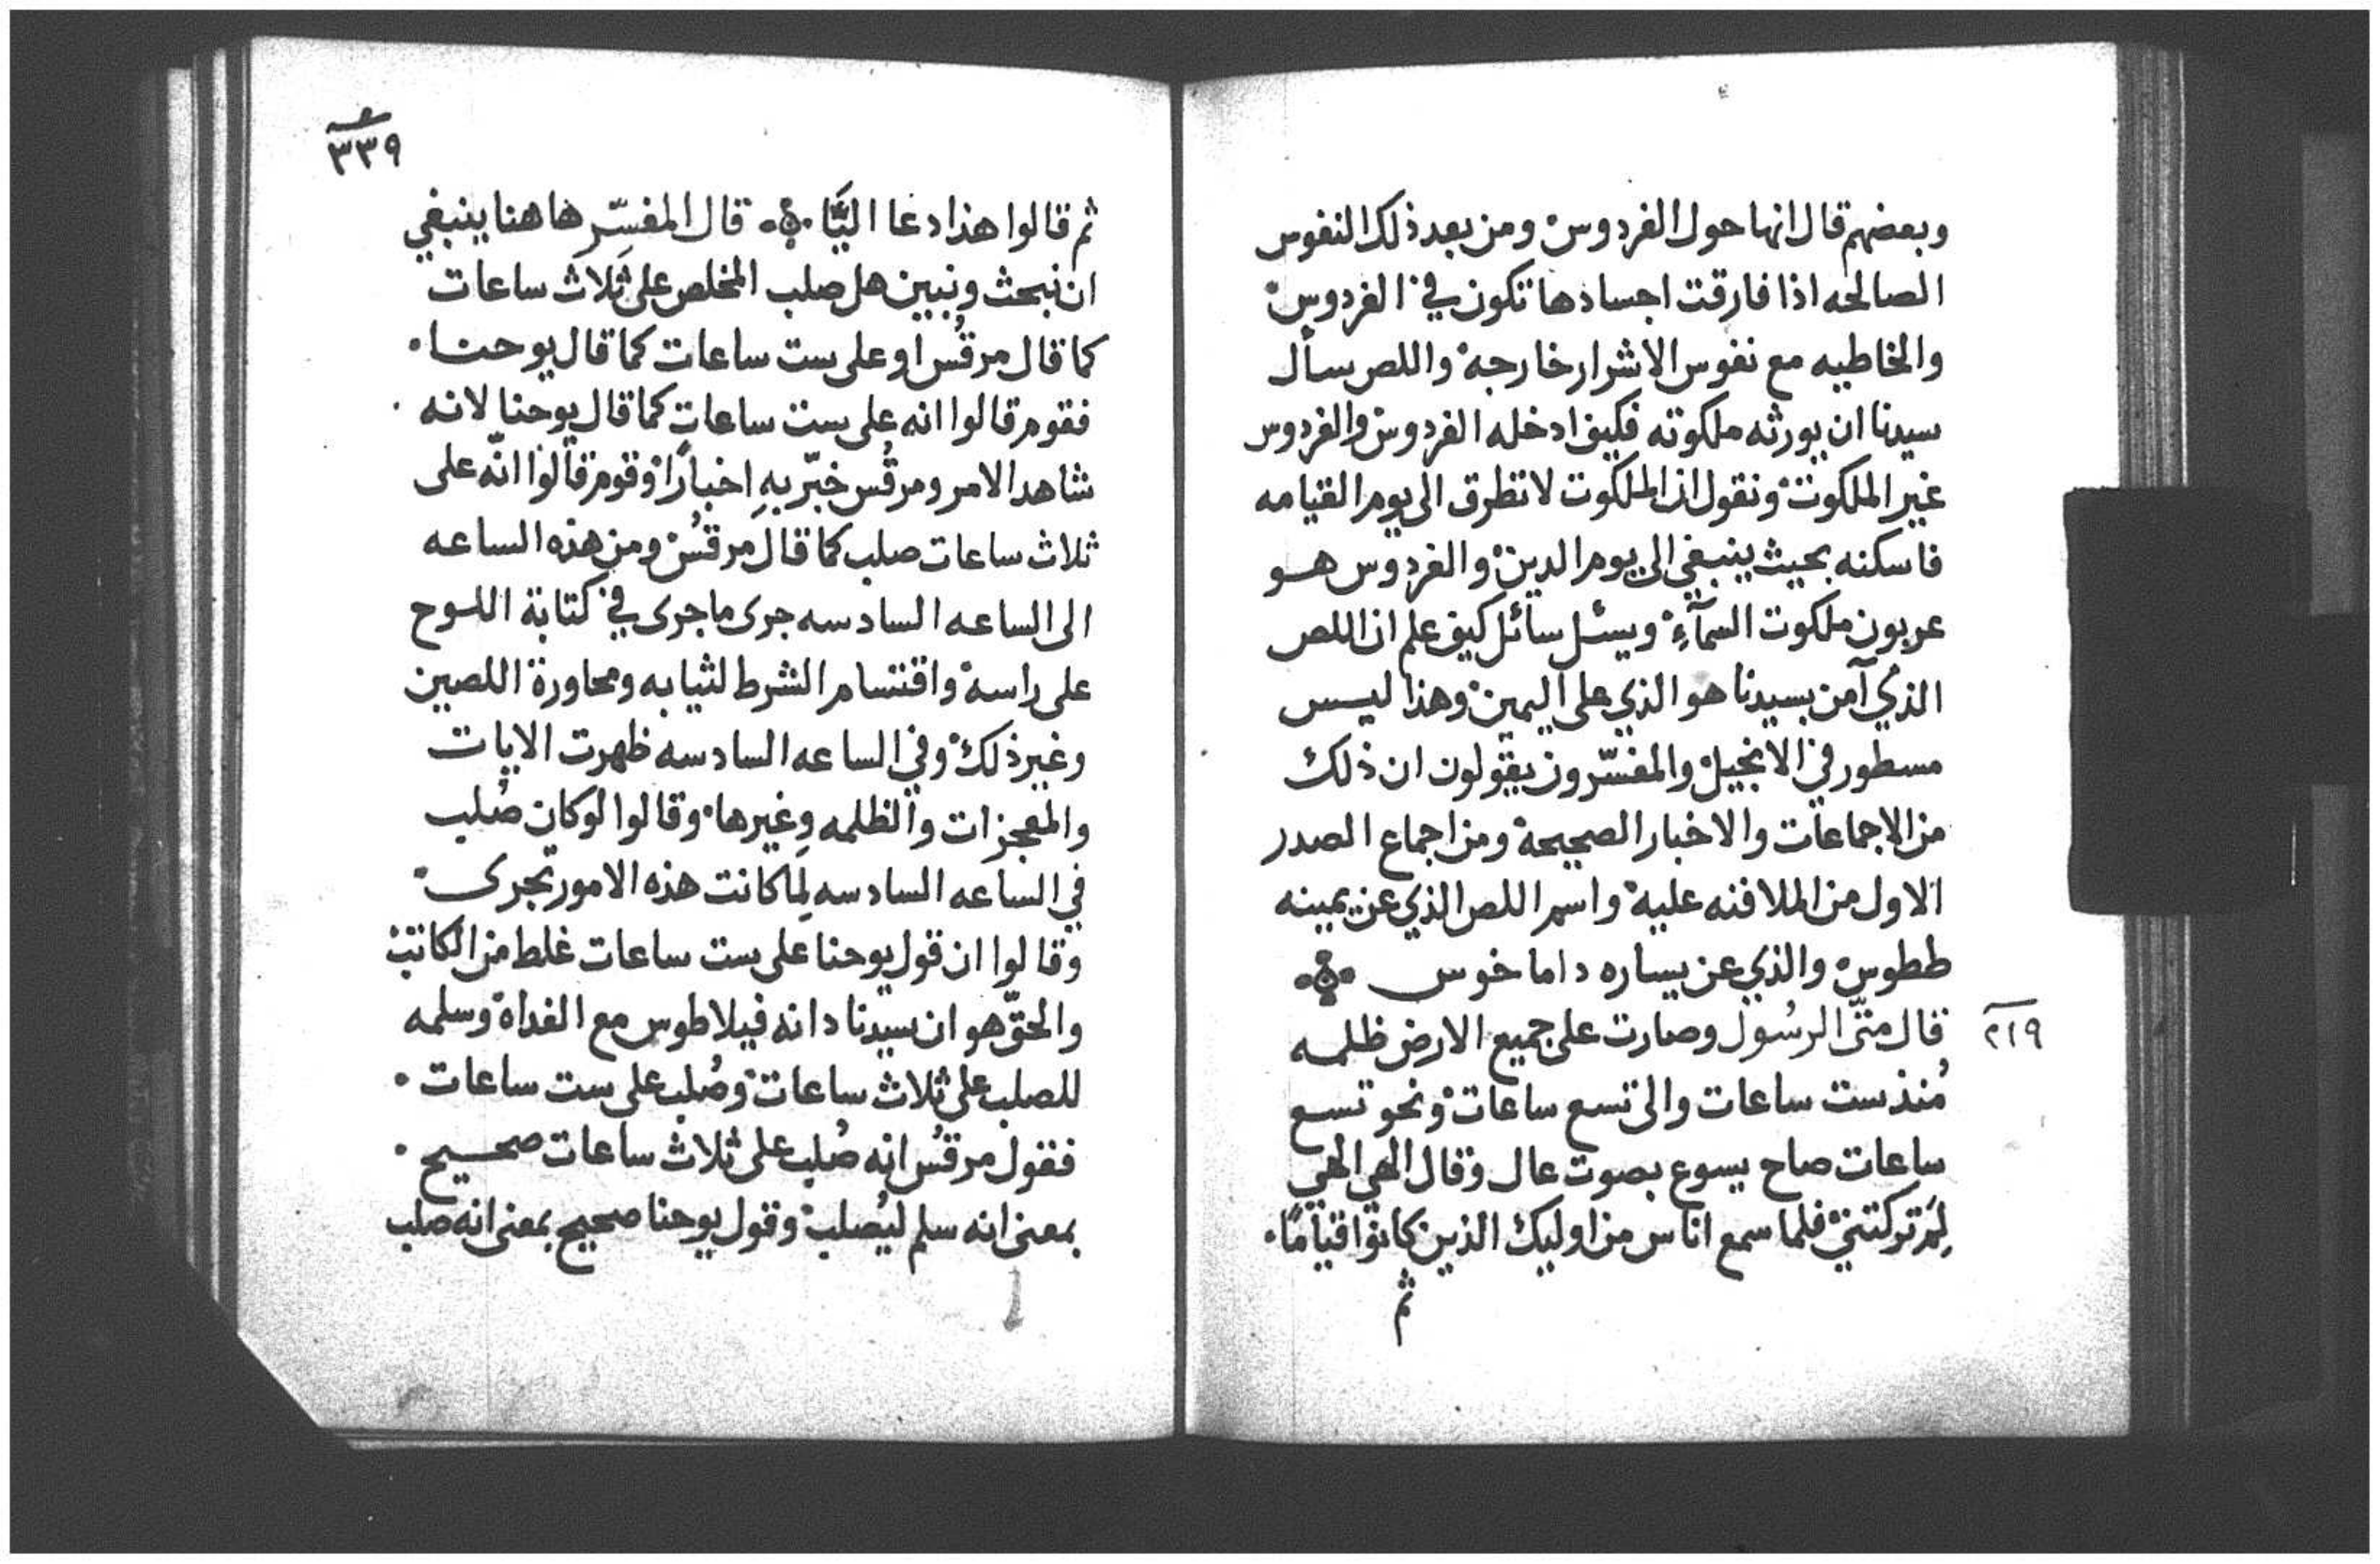 وبعضهم قال انها حول الفردوس ومن بعد ذلك النفوس
الصالحه اذا فارقت اجسادها تكون في الفردوس
والخاطيه مع نفوس الاشرار خارجة واللص سأل
سيدنا ان يورثه ملكوته فكيف ادخله الفردوس والفردوس
غير الملكوت ونقول ان الملكوت لا تطرق الى يوم القيامه
فاسكنه بحيث ينبغي الى يوم الدين والفردوس هو
عربون ملكوت السمآءِ ويسئل سائل كيف علم ان اللص
الذي آمن بسيدنا هو الذي على اليمين وهذا ليس
مسطور في الانجيل والمفسّرون يقولون ان ذلك
من الاجماعات والاخبار الصحيحة ومن اجماع الصدر
الاول من الملافنه عليه واسم اللص الذي عن يمينه
ططوس والذي عن يساره داماخوس
٢١٩
قال متّى الرسُول وصارت على جميع الارض ظلمه
مُنذ ست ساعات والى تسع ساعات ونحو تسع
ساعات صاح يسوع بصوت عال وقال الهي الهي
لِمَ تركتني فلما سمع اناس من اوليك الذين كانوا قيامًا
ثم
٣٣٩
ثم قالوا هذا دعا اليَّا قال المفسِّر هاهنا ينبغي
ان نبحث ونبين هل صلب المخلص على ثلاث ساعات
كما قال مرقُس او على ست ساعات كما قال يوحنا
فقوم قالوا انه على ست ساعات كما قال يوحنا لانه
شاهد الامر ومرقُس خبّر بهِ اخبارًا وقوم قالوا انّه على
ثلاث ساعات صلب كما قال مرقُس ومن هذه الساعه
الى الساعه السادسه جرى ما جرى في كتابة اللوح
على راسه واقتسام الشرط لثيابه ومحاورة اللصين
وغير ذلك وفي الساعه السادسه ظهرت الايات
والمعجزات والظلمه وغيرها وقالوا لو كان صُلب
في الساعه السادسه لِما كانت هذه الامور تجرى
وقالوا ان قول يوحنا على ست ساعات غلط من الكاتب
والحقّ هو ان سيدنا دانه فيلاطوس مع الغداة وسلمه
للصلب على ثلاث ساعات وصُلب على ست ساعات
فقول مرقُس انه صُلب على ثلاث ساعات صحيح
بمعنى انه سلم ليُصلب وقول يوحنا صحيح بمعنى انه صلب